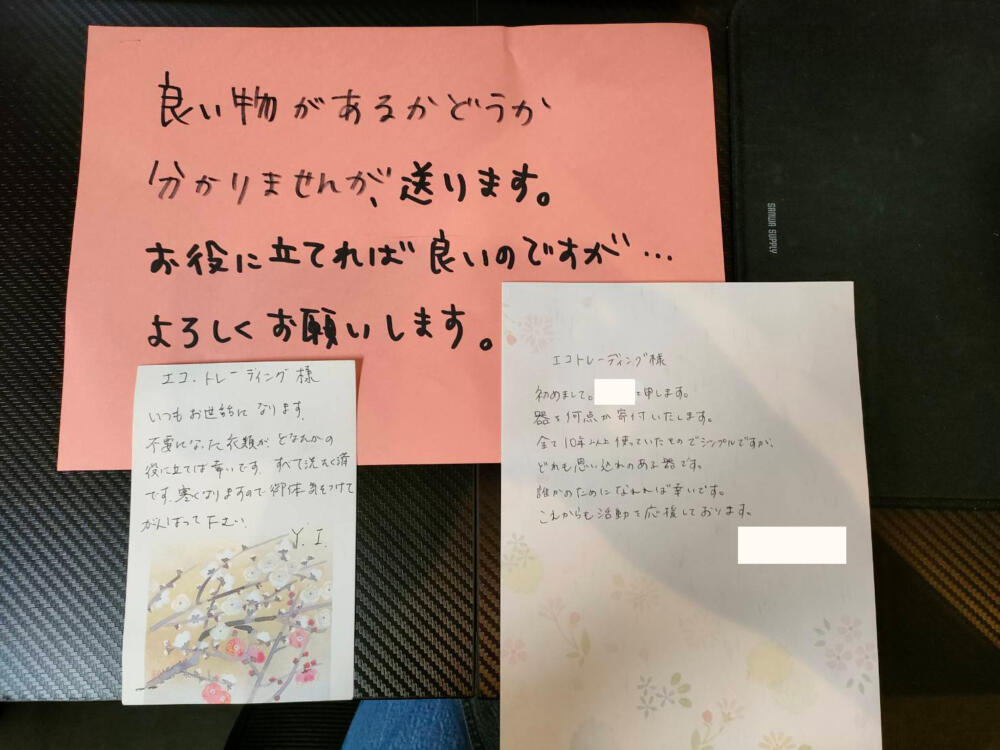 良い物があるかどうか
分かりませんが、送ります。
お役に立てれば良いのですが…
よろしくお願いします。
SANWA SUPPLY
エコ・トレーディング様
いつもお世話になります。
不要になった衣類が、どなたかの
役に立てば幸いです。すべて洗たく済
です。寒くなりますので御体気をつけて
がんばって下さい。
Y.I.
エコトレーディング様
初めまして。と申します。
器を何点か寄付いたします。
全て10年以上使っていたものでシンプルですが、
どれも思い込れのある器です。
誰かのためになれれば幸いです。
これからも活動を応援しております。